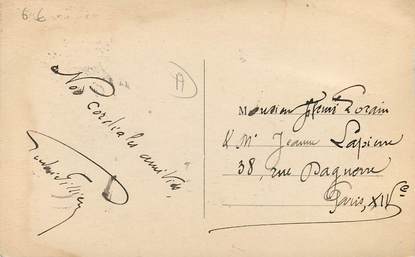 66
A
Nos cordiales amitiés.
Monsieur Henri Lorain
& Me Jeanne Lapierre
38, rue Pagnerre
Paris, XIVe